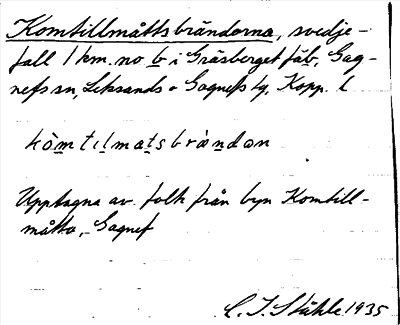 Komtillmåttsbränderna, svedje-
fall 1 km. no b i Gräsberget fäb, Gag-
nefs sn, Leksands o Gagnefs tg, Kopp. l
kòmtɩlmatsbrándɑn
Upptagna av folk från byn Komtill-
måtta, Gagnef
C. I. Ståhle 1935